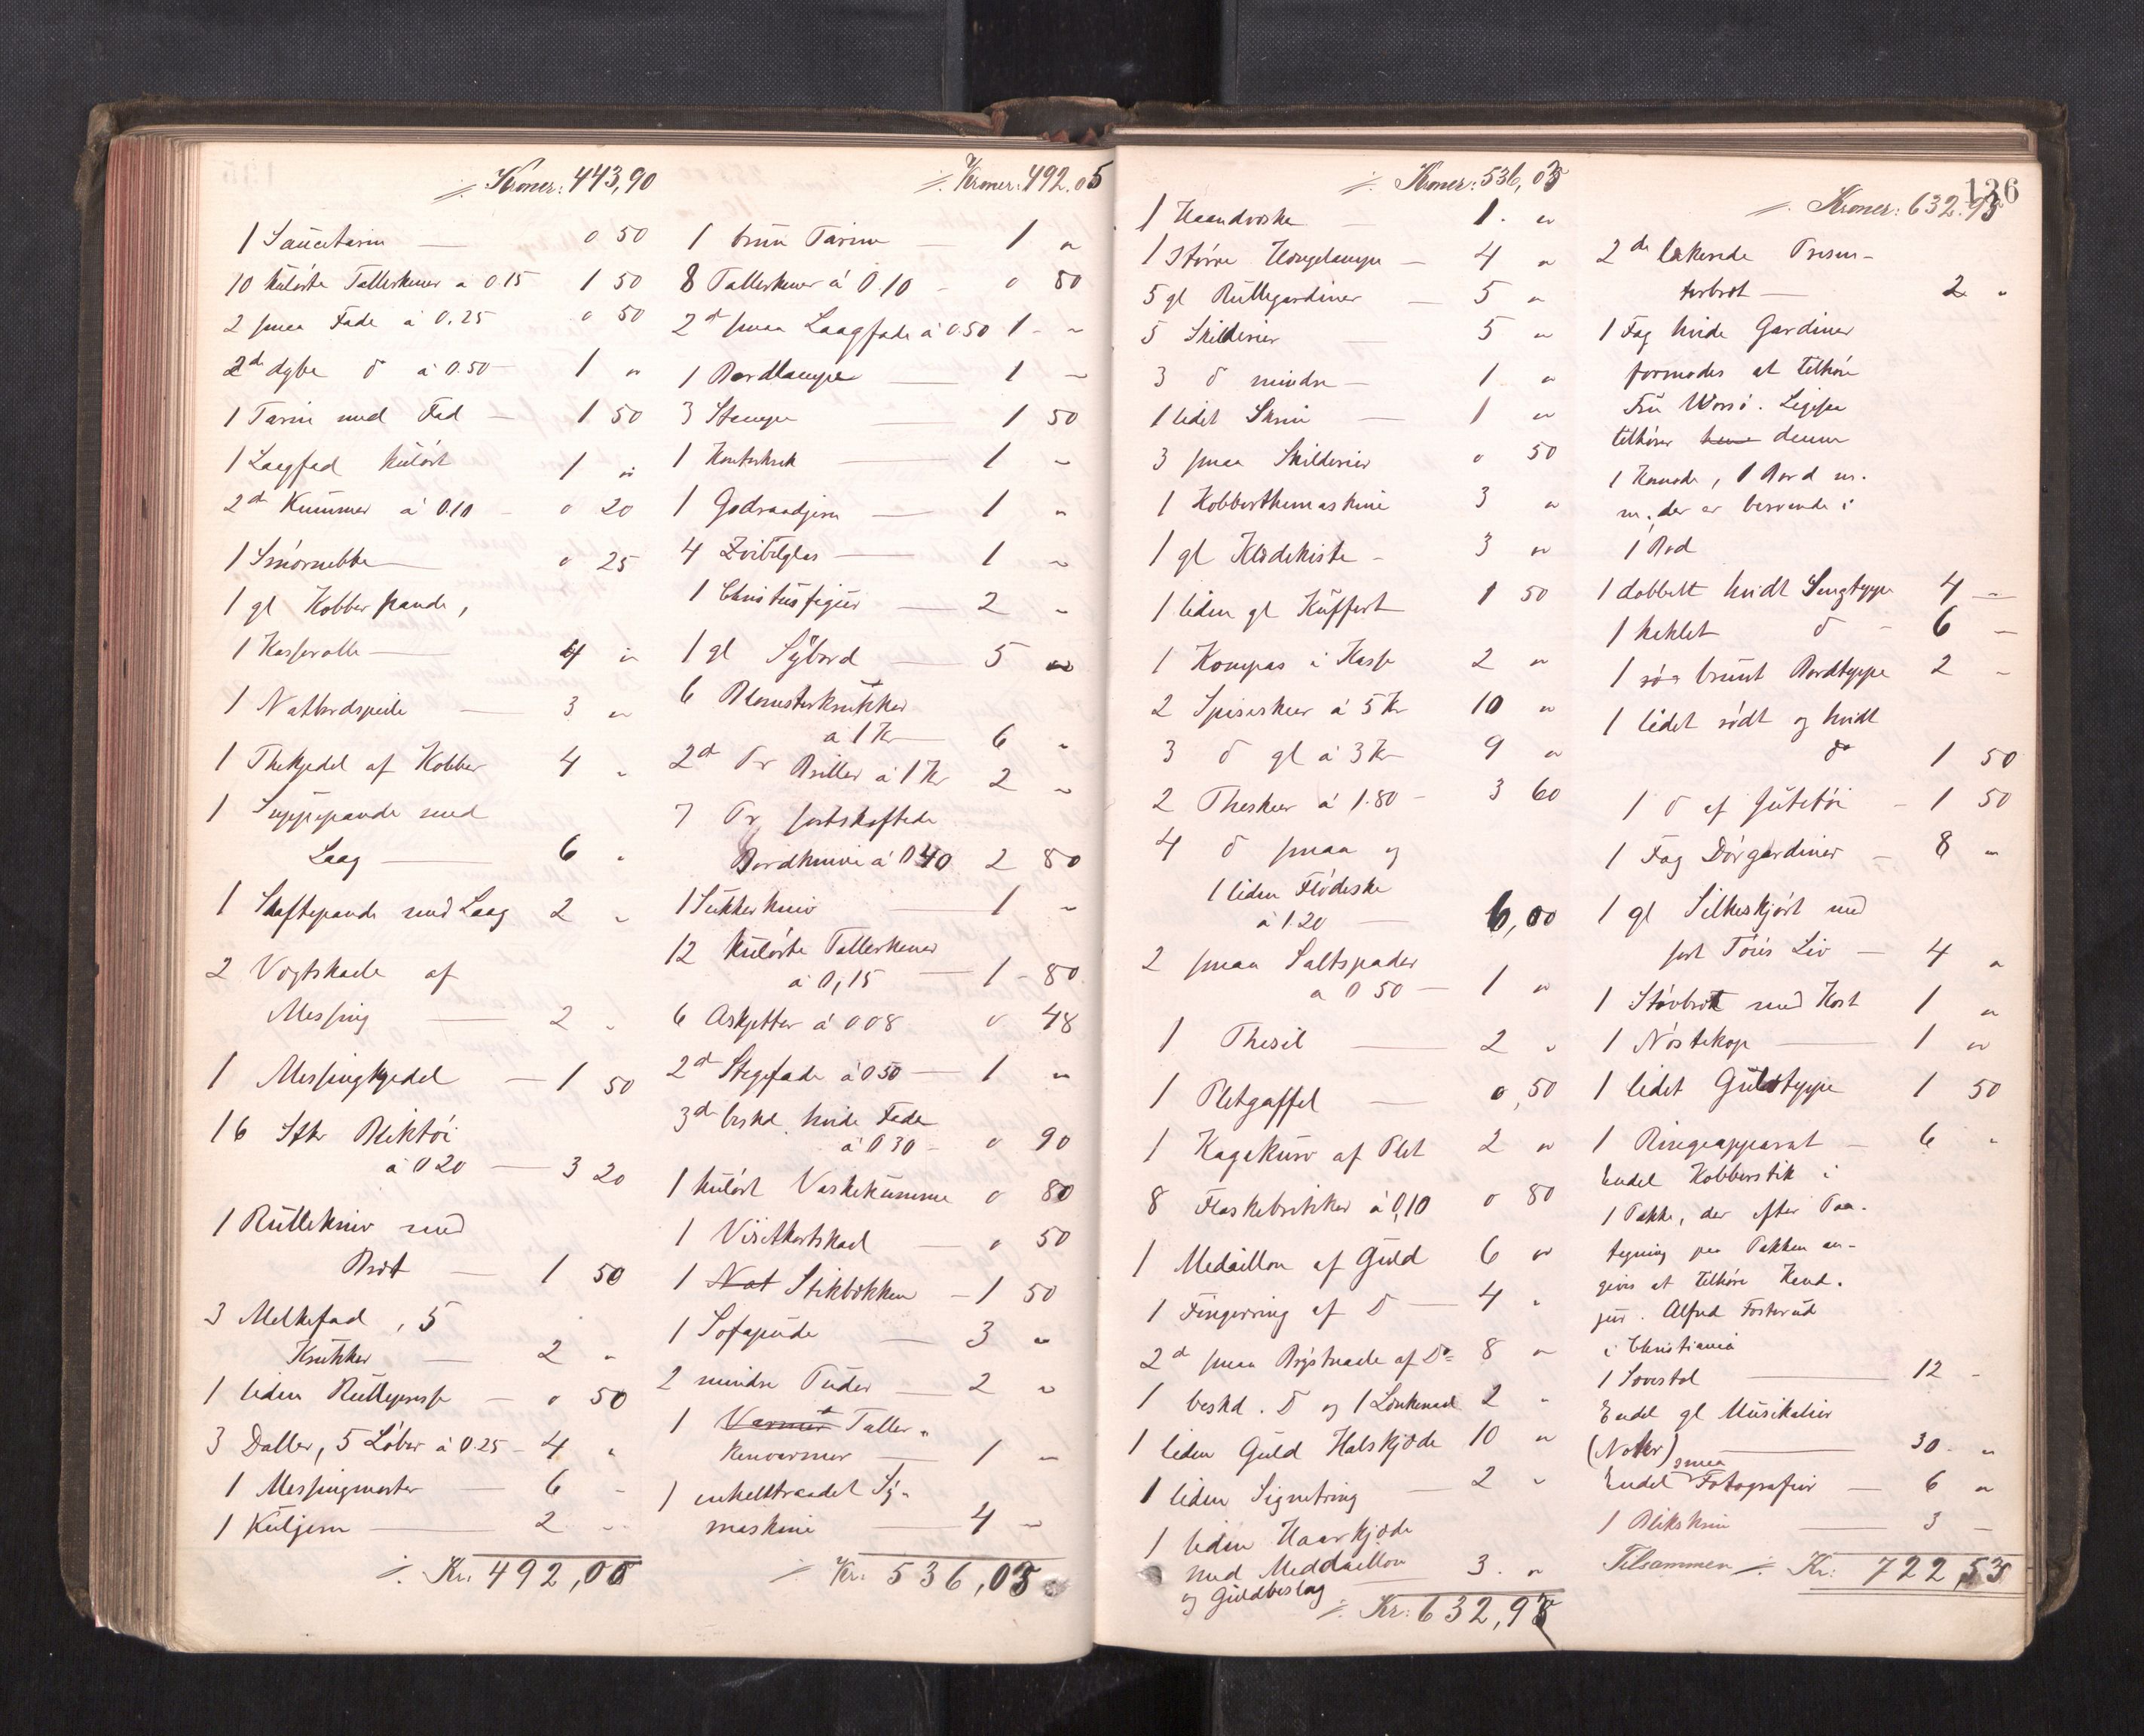 ⁒ Kroner: 443,90
1 Saucetarin — 0 50
10 kulørte Tallerkener a 0.15 1 50
2 smaa Fade á 0.25 0 50
2de dybe do á 0.50 1 "
1 Tarin med Fad — 1 50
1 Laagfad kulørt 1 "
2de Kummer á 0.10 - 0 20
1 Smørnebbe — 0 25
1 gl Kobberpande,
1 Kasserolle — 4 "
1 Natbordspeile — 3 "
1 Thekjedel af Kobber 4 "
1 Suppepande med
Laag — 6 "
1 Skaftepande med Laag 2 "
2 Vegtskaale af
Messing — 2 "
1 Messingkjedel — 1 50
16 Stkr Bliktøi
á 0 20 — 3 20
1 Rullekniv med
Bræt — 1 50
3 Melkefad, 5
Krukker — 2 "
1 liden Rullepresse — 0 50
3 Daller, 5 Løber á 0.25 - 4 "
1 Messingmorter — 6 -
1 Kuljern — 2 "
⁒ Kr. 492,05
⁒ Kroner: 492.05
1 brun Tarin — 1 "
8 Tallerkener á 0.10 - 0 80
2de smaa Laagfade á 0.50 1 - "
1 Bordlampe — 1 "
3 Stempe — 1 50
1 — 1 "
1 Godraadjern — 1 "
4 Zvibelglas — 1 "
1 Christusfigur — 2 "
1 gl Sybord — 5 "
6 Blomsterkrukker
a 1 Kr — 6 "
2de Pr Briller á 1 Kr 2 "
7 Pr sortskaftede
Bordknive á 0 40 2 80
1 Sukkerkniv — 1 "
12 kulørte Tallerkener
a 0,15 — 1 - 80
6 Asjetter á 0 08 0 48
2de Stegefade á 0 50 — 1 "
3de beskd. hvide Fade
á 0 30 - 0 90
1 kulørt Vaskekumme 0 80
1 Visitkortskaal — 0 50
1 Nat Stikbækken — 1 50
1 Sofapude — 3 "
2 mindre Puder — 2 "
1 Varmer Taller-
kenvarmer — 1 "
1 enkelttraadet Sy-
maskine — 4 "
⁒ Kr. 536,03
⁒ Kroner: 536,03
1 Haandvæske — 1. "
1 større Hængelampe — 4 "
5 gl Rullegardiner — 5 "
5 Skilderier — 5 "
3 do mindre — 1 "
1 lidet Skrin — 1 "
3 smaa Skilderier 0 50
1 Kobberthemaskine 3 "
1 gl Klædekiste - 3 "
1 liden gl Kuffert 1 50
1 Kompas i Kasse 2 "
2 Spiseskeer á 5 Kr 10 "
3 do gl á 3 Kr 9 "
2 Theskeer á 1.80 - 3 60
4 do smaa og
1 liden Flødeske
á 1.20 — 6,00
2 smaa Saltspader
a 0 50 — 1 "
1 Thesil — 2 "
1 Pletgaffel — 0,50
1 Kagekurv af Plet 2 "
8 Flaskebrikker á 0,10 0 80
1 Medaillon af Guld 6 "
1 Fingerring af Do — 4 "
2de smaa Brystnaale af Do= 8 "
1 beskd. Do og 1 Lænkenaal 2 "
1 liden Guld Halskjæde 10 "
1 liden Signetring — 2 "
1 liden Haarkjæde
med Meddaillon
og Guldbeslag — 3. "
⁒ Kr: 632,93
136
⁒ Kroner: 632.93
2de lakerede Presen-
terbræt — 2 "
1 Fag hvide Gardiner
formodes at tilhøre
Fru Worsø. Ligesaa
tilhører hende denne
1 Komode, 1 Bord m.
m. der er beroende i
1 Bod
1 dobbelt hvidt Sengtæppe 4 —
1 heklet do - 6 —
1 rø= brunt Bordtæppe 2 -
1 lidet rødt og hvidt
do 1 50
1 do af Jutetøi — 1 50
1 Fag Dørgardiner — 8 "
1 gl Silkeskjørt med
sort Tøies Liv — 4 "
1 Støvbræt med Kost 1 "
1 Nøstekop — 1 "
1 lidet Gulvtæppe 1 50
1 Ringeapparat — 6 "
Endel Kobberstik i
1 Pakke, der efter Paa-
tegning paa Pakken an-
gives at tilhøre Kand.
jur. Alfred Fosterud
i Christiania
1 Lænestol — 12 -
Endel gl Musikalier
(Noter) — 30. "
Endel smaa Fotografier — 6 "
1 Blikskrin — 3 —
Tilsammen ⁒ Kr: 722,53